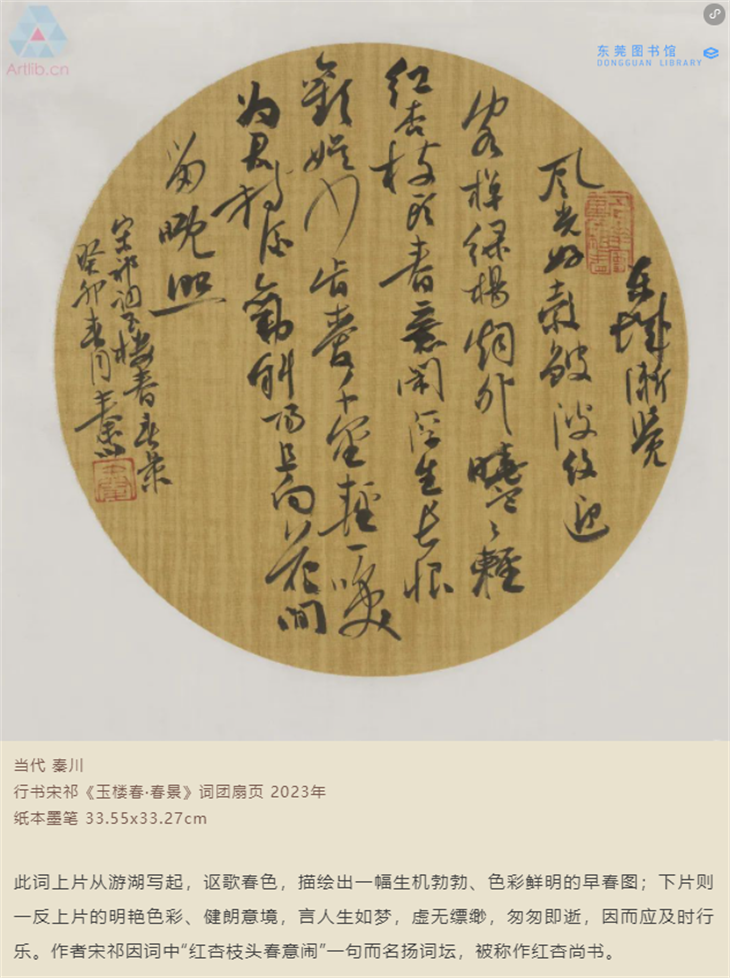 Artlib.cn
东莞图书馆
DONGGUAN LIBRARY
东城渐觉
风光好縠皱波纹迎
客棹绿杨烟外曉云輕
红杏枝头春意闹浮生长恨
歡娱少肯爱千金輕一笑
为君持酒劝斜阳且向花间
留晚照
宋祁词玉楼春春景
癸卯春月秦川
当代 秦川
行书宋祁《玉楼春·春景》词团扇页 2023年
纸本墨笔 33.55x33.27cm
此词上片从游湖写起，讴歌春色，描绘出一幅生机勃勃、色彩鲜明的早春图；下片则
一反上片的明艳色彩、健朗意境，言人生如梦，虚无缥缈，匆匆即逝，因而应及时行
乐。作者宋祁因词中“红杏枝头春意闹”一句而名扬词坛，被称作红杏尚书。